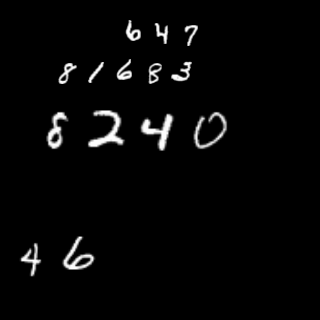 647
81683
8240
46